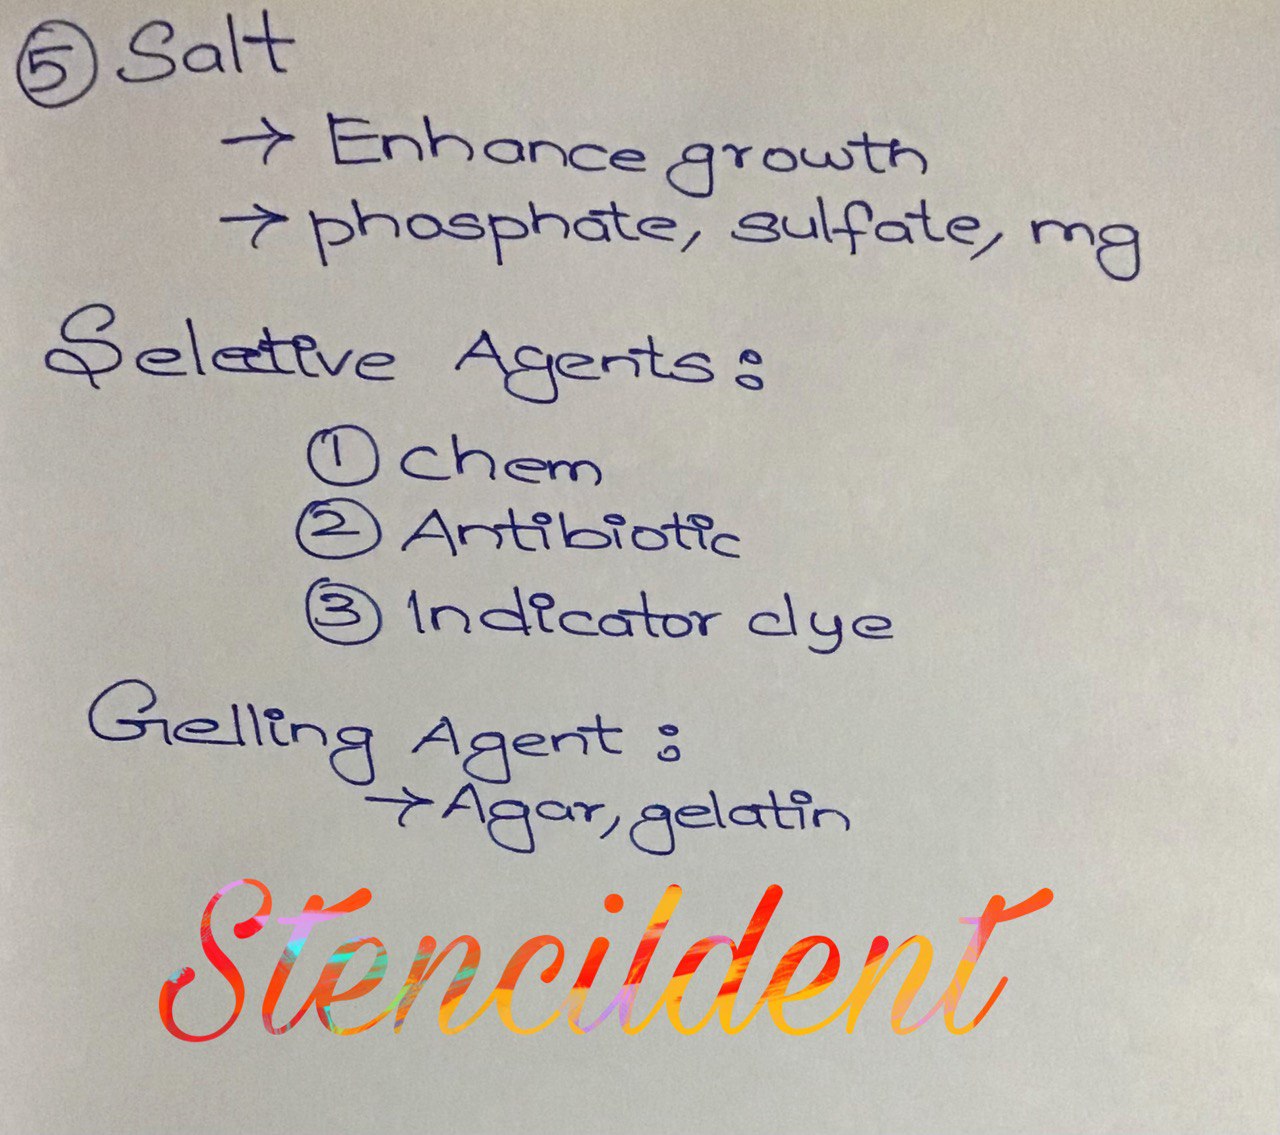 ⑤ Salt
→ Enhance growth
→ phosphate, sulfate, mg
Seletive Agents:
① chem
② Antibiotic
③ Indicator dye
Gelling Agent:
→ Agar, gelatin
Stencildent